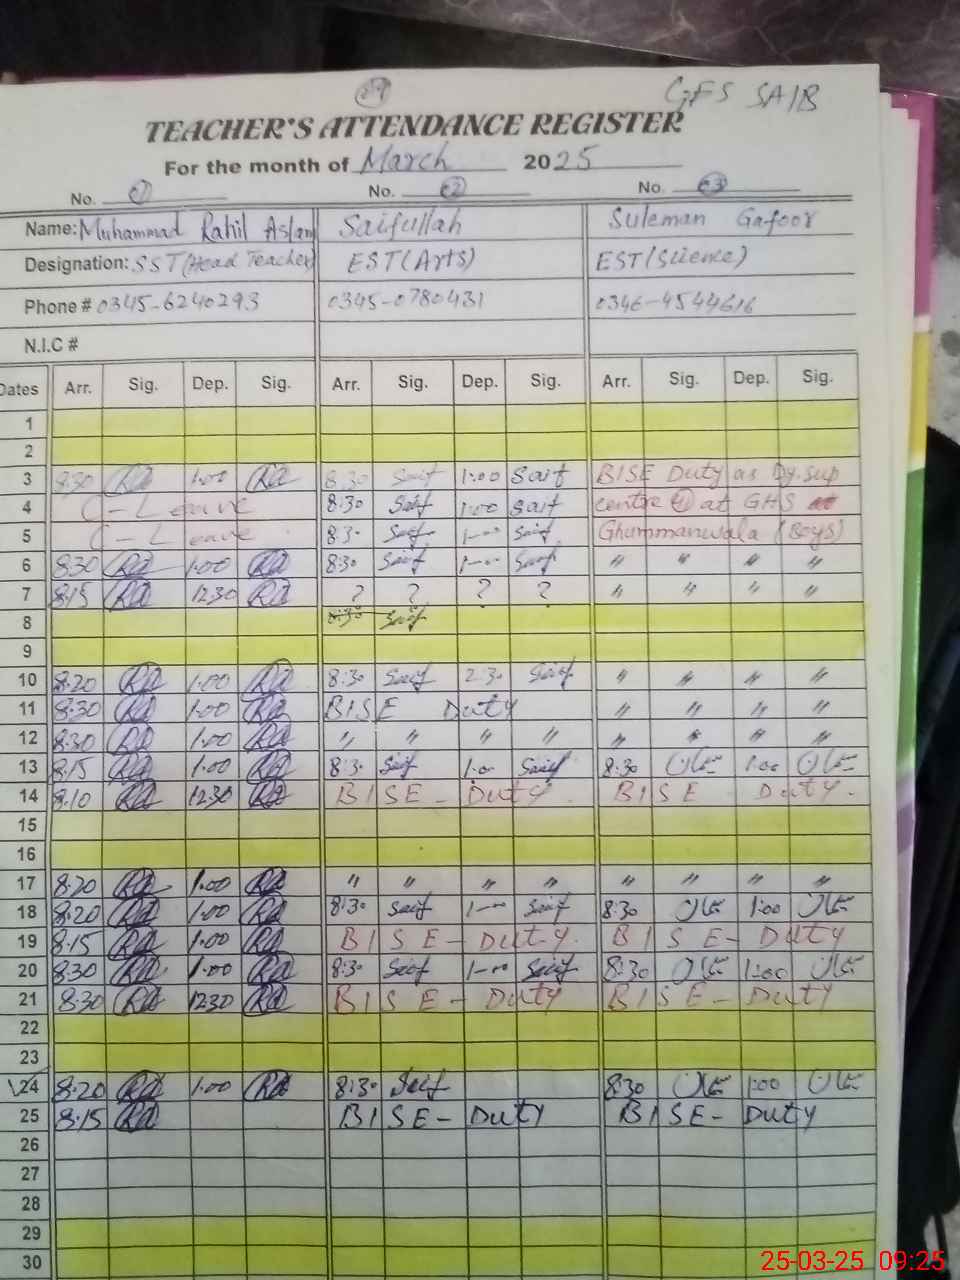 GFS SAIB
TEACHER'S ATTENDANCE REGISTER
For the month of March 2025
No. 01 No. 02 No. 03
Name: Muhammad Rahil Aslam Saifullah Suleman Gafoor
Designation: SST(Head Teacher) EST(Arts) EST(Science)
Phone # 0345-6240293 0345-0780431 0346-4544616
N.I.C #
Dates Arr. Sig. Dep. Sig. Arr. Sig. Dep. Sig. Arr. Sig. Dep. Sig.
1
2
3 8:30 Ra 1:00 Ra 8:30 Saif 1:00 Saif BISE Duty as Dy.sup
4 C-Leave 8:30 Saif 1:00 Saif centre at GHS
5 C-Leave 8:30 Saif 1-00 Saif Ghummanwala (Boys)
6 8:30 Ra 1:00 Ra 8:30 Saif 1-00 Saif " " " "
7 8:15 Ra 12:30 Ra ? ? ? ? " " " "
8 8:30 Saif
9
10 8:20 Ra 1:00 Ra 8:30 Saif 2:30 Saif " " " "
11 8:30 Ra 1:00 Ra BISE Duty " " " "
12 8:30 Ra 1:00 Ra " " " " " " " "
13 8:15 Ra 1:00 Ra 8:30 Saif 1:00 Saif 8:30 1:00
14 8:10 Ra 12:30 Ra BISE - Duty BISE Duty.
15
16
17 8:20 Ra 1:00 Ra " " " " " " " "
18 8:20 Ra 1:00 Ra 8:30 Saif 1-00 Saif 8:30 1:00
19 8:15 Ra 1:00 Ra BISE - Duty. BISE - Duty
20 8:30 Ra 1:00 Ra 8:30 Saif 1-00 Saif 8:30 1:00
21 8:30 Ra 12:30 Ra BISE - Duty BISE - Duty
22
23
24 8:20 Ra 1:00 Ra 8:30 Saif 8:30 1:00
25 8:15 Ra BISE - Duty BISE - Duty
26
27
28
29
30
25-03-25 09:25